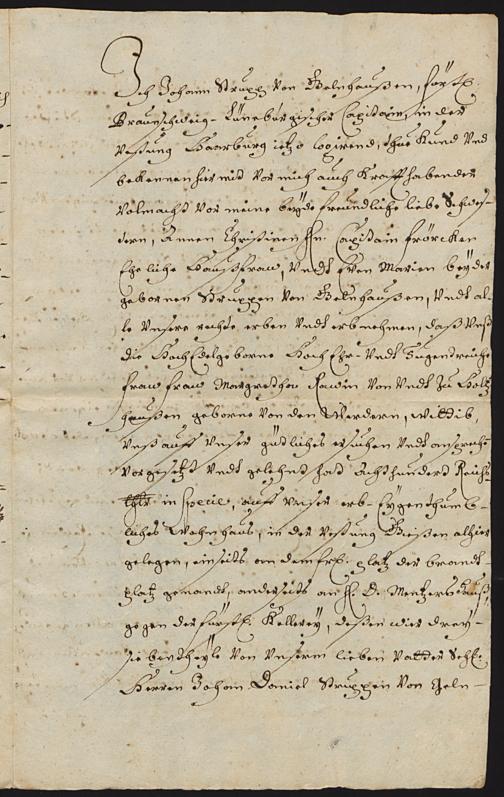 Ich Johann Strupp von Gelnhaußen, fürstl.
Braunschweig-Lüneburgischer Capitain, in der
Vestung Haarburg itzo logirend, thue kund und
bekennen hiermit vor mich auch krafft habender
Volmacht vor meine beyde freundliche liebe Schwes-
tern, Annen Christinen H. Capitain
Eheliche Haußfraw, undt Even Marien beyder
gebornen Struppen von Gelnhaußen, undt al-
le unsere rechte erben undt erbnehmen, daß unß
die HochEdelgeborne Hoch Ehr- undt Tugendreiche
fraw fraw Margretha Rawin von undt zu Holtz
haußen geborne von den Werdern, Wittib,
unß auff unser gütliches ersuchen undt ansprech
vorgesetzt undt gelehnt hat achthundert Reichs
thlr in specie, auff unser erb- Eygenthumb-
liches Wohnhaus, in der Vestung Gießen alhier
gelegen, einseits an dem frl. platz der brandt-
platz genandt, anderseits an H. D. Mentzers
gegen der fürstl. Kellerey, deßen wir drey-
sie von unserm lieben Vatter Sehl.
Herren Johann Daniel Struppen von Geln-